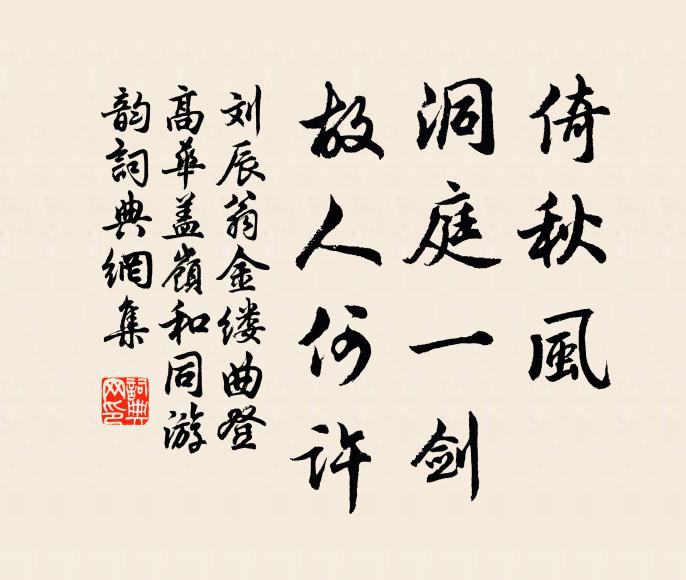 倚秋風
洞庭一剑
故人何许
刘辰翁金缕曲登
高華盖嶺和同游
韵詞典網集
詞典
网印